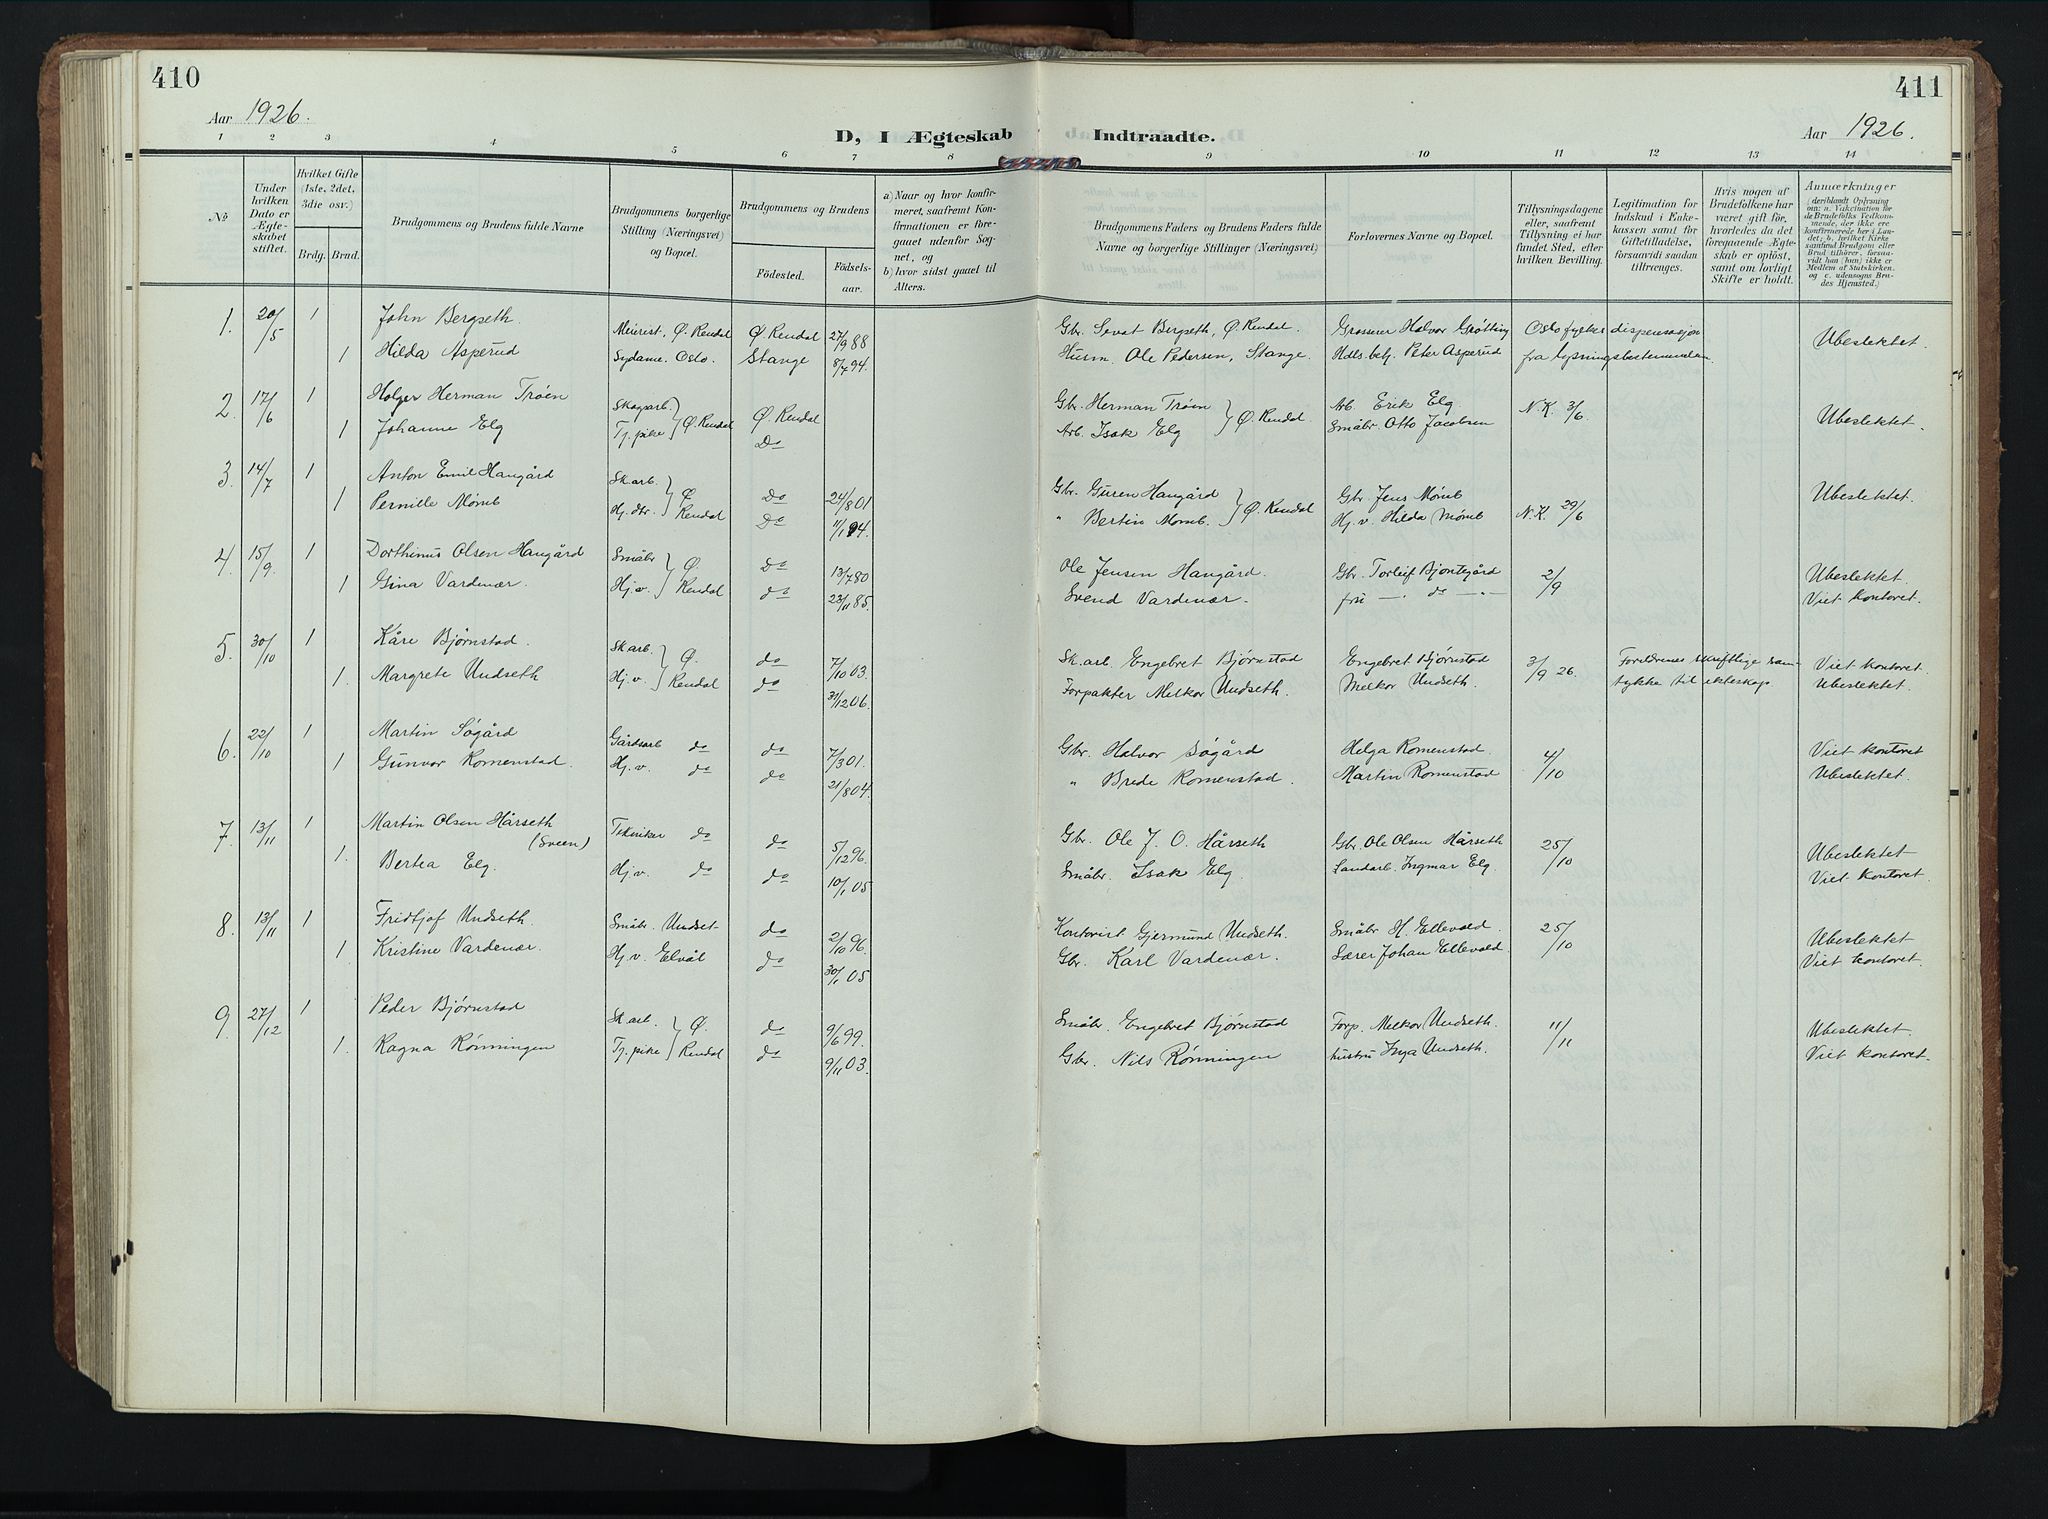 410
411
Aar 1926.
D, I Ægteskab Indtraadte.
Aar 1926.
1 2 3 4 5 6 7 8 9 10 11 12 13 14
No
Under hvilken Dato er Ægteskabet stiftet.
Hvilket Gifte (1ste, 2det, 3die osv.)
Brdg. Brud.
Brudgommens og Brudens fulde Navne
Brudgommens borgerlige Stilling (Næringsvei) og Bopæl.
Brudgommens og Brudens
Fødested.
Fødselsaar.
a) Naar og hvor konfirmeret, saafremt Konfirmationen er foregaaet udenfor Sognet, og
b) hvor sidst gaaet til Alters.
Brudgommens Faders og Brudens Faders fulde Navne og borgerlige Stillinger (Næringsvei)
Forlovernes Navne og Bopæl.
Tillysningsdagene eller, saafremt Tillysning ei har fundet Sted, efter hvilken Bevilling.
Legitimation for Indskud i Enkekassen samt for Giftetilladelse, forsaavidt saadan tiltrænges.
Hvis nogen af Brudefolkene har været gift før, hvorledes da det foregaaende Ægteskab er opløst, samt om lovligt Skifte er holdt.
Anmærkninger (deriblandt Oplysning om: a. Vakcination for de Brudefolks Vedkommende, der ikke ere konfirmerede her i Landet; b. hvilket Kirkesamfund Brudgom eller Brud tilhører, forsaavidt han (hun) ikke er Medlem af Statskirken, og c. udensogns Brudes Hjemsted.)
1. 20/5 1 John Bergseth. Meierist, Ø. Rendal Ø Rendal 27/9 88 Gbr. Sevat Bergseth, Ø Rendal. Grosserer Halvor Grøtting Oslo fylkes dispensasjon
1 Hilda Asperud Sydame. Oslo. Stange 8/7 94. Husm. Ole Pedersen, Stange. Hdls.betj. Peter Asperud fra lysningsbestemmelsen. Ubeslektet.
2. 17/6 1 Holger Herman Trøen Skogsarb. Ø. Rendal Ø Rendal Gbr. Herman Trøen Ø. Rendal Arb. Erik Elg N.K. 3/6
1 Johanne Elg Tj. pike Do Arb. Isak Elg Småbr. Otto Jacobsen Ubeslektet.
3. 14/7 1 Anton Emil Haugård Sk.arb. Ø. Do 24/8 01 Gbr. Guren Haugård Ø. Rendal Gbr. Jens Mømb Ubeslektet.
1 Pernille Mømb Hj. dtr. Rendal Do 11/1 94. " Bertin Mømb. Hj.v. Hilda Mømb N.K. 29/6
4. 15/9. 1 Dorthinus Olsen Haugård Småbr Ø. Do 13/7 80 Ole Jensen Haugård. Gbr. Torleif Bjøntegård 2/9 Ubeslektet.
1 Gina Vardenær. Hj.v. Rendal do 23/11 85. Svend Vardenær. fru —" do —" Viet kontoret.
5. 30/10 1 Kåre Bjørnstad. Sk arb. Ø. do 7/10 03. Sk. arb. Engebret Bjørnstad Engebret Bjørnstad 3/9 26. Foreldrenes skriftlige sam- Viet kontoret.
1. Margrete Undseth Hj.v. Rendal do 31/12 06. Forpakter Melkor Undseth. Melkor Undseth. tykke til ekteskap Ubeslektet.
6. 22/10 1 Martin Søgård Gårdsarb do do 7/3 01. Gbr. Halvor Søgård Helga Romenstad. 4/10 Viet kontoret
1 Gunvor Romenstad. Hj.v. do do 21/8 04. " Brede Romenstad. Martin Romenstad Ubeslektet.
7. 13/11 1 Martin Olsen Hårseth Tekniker do do 5/12 96. Gbr. Ole J. O. Hårseth Gbr. Ole Olsen Hårseth 25/10 Ubeslektet
(Sveen)
1. Bertea Elg. Hj.v. do do 10/1 05 Småbr. Isak Elg. Landarb. Ingmar Elg Viet kontoret.
8. 13/11 1 Fridtjof Undseth. Småbr. Undset do 2/10 96. Kontorist Gjermund Undseth. Småbr H. Ellevold. 25/10 Ubeslektet
1 Kristine Vardenær. Hj.v. Elvål do 30/1 05 Gbr. Karl Vardenær. Lærer Johan Ellevold. Viet kontoret.
9. 27/12 1 Peder Bjørnstad Sk arb. Ø. do 9/6 99. Småbr. Engebret Bjørnstad Forp. Melkor Undseth. 11/11 Ubeslektet.
1. Ragna Rønningen Tj. pike Rendal do 9/11 03. Gbr. Nils Rønningen hustru Inga Undseth. Viet kontoret.